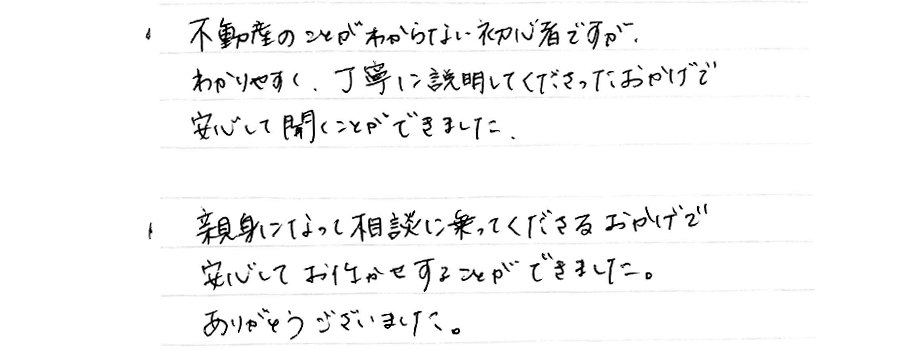 ・ 不動産のことがわからない初心者ですが、
わかりやすく、丁寧に説明してくださったおかげで
安心して聞くことができました。
・ 親身になって相談に乗ってくださるおかげで
安心してお任せすることができました。
ありがとうございました。